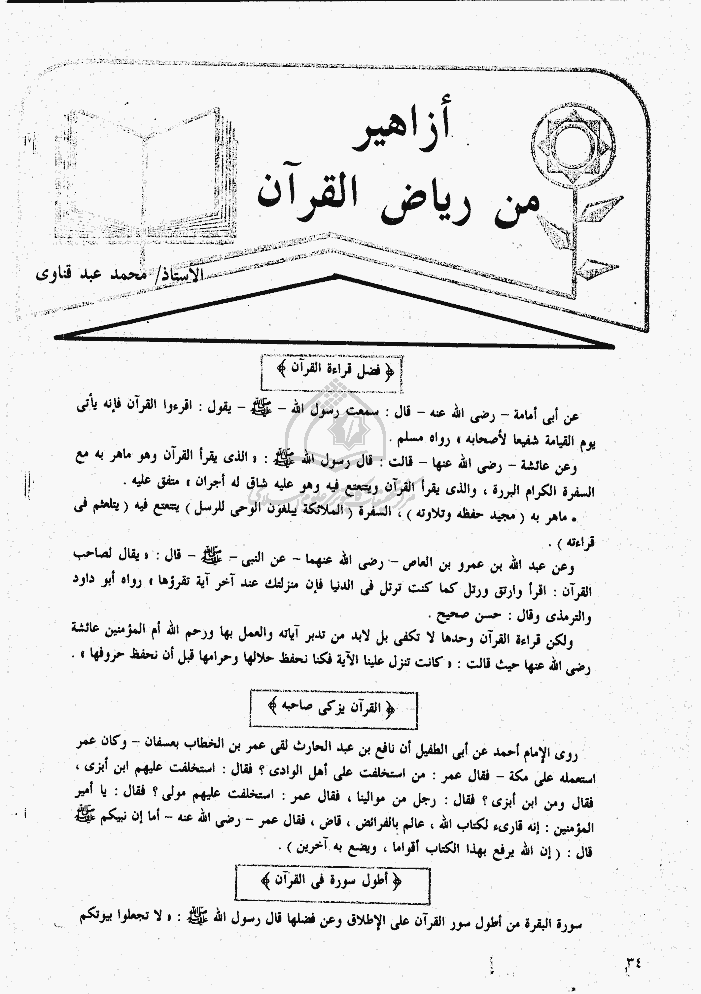 أزاهير
من رياض القرآن
الأستاذ/ محمد عبد قناوى
﴿ فضل قراءة القرآن ﴾
عن أبى أمامة – رضى الله عنه – قال : سمعت رسول الله – ﷺ – يقول : اقرءوا القرآن فإنه يأتى
يوم القيامة شفيعا لأصحابه » رواه مسلم .
وعن عائشة – رضى الله عنها – قالت : قال رسول الله ﷺ : « الذى يقرأ القرآن وهو ماهر به مع
السفرة الكرام البررة ، والذى يقرأ القرآن ويتتعتع فيه وهو عليه شاق له أجران » متفق عليه .
* ماهر به ( مجيد حفظه وتلاوته ) ، السفرة ( الملائكة يبلغون الوحى للرسل ) يتتعتع فيه ( يتلعثم فى
قراءته ) .
وعن عبد الله بن عمرو بن العاص – رضى الله عنهما – عن النبى – ﷺ – قال : « يقال لصاحب
القرآن : اقرأ وارتق ورتل كما كنت ترتل فى الدنيا فإن منزلتك عند آخر آية تقرؤها » رواه أبو داود
والترمذى وقال : حسن صحيح .
ولكن قراءة القرآن وحدها لا تكفى بل لابد من تدبر آياته والعمل بها ورحم الله أم المؤمنين عائشة
رضى الله عنها حيث قالت : « كانت تنزل علينا الآية فكنا نحفظ حلالها وحرامها قبل أن نحفظ حروفها » .
﴿ القرآن يزكى صاحبه ﴾
روى الإمام أحمد عن أبى الطفيل أن نافع بن عبد الحارث لقى عمر بن الخطاب بعسفان – وكان عمر
استعمله على مكة – فقال عمر : من استخلفت على أهل الوادى ؟ فقال : استخلفت عليهم ابن أبزى ،
فقال ومن ابن أبزى ؟ فقال : رجل من موالينا ، فقال عمر : استخلفت عليهم مولى ؟ فقال : يا أمير
المؤمنين : إنه قارىء لكتاب الله ، عالم بالفرائض ، قاض ، فقال عمر – رضى الله عنه – أما إن نبيكم ﷺ
قال : ( إن الله يرفع بهذا الكتاب أقواما ، ويضع به آخرين ) .
﴿ أطول سورة فى القرآن ﴾
سورة البقرة من أطول سور القرآن على الإطلاق وعن فضلها قال رسول الله ﷺ : « لا تجعلوا بيوتكم
٣٤